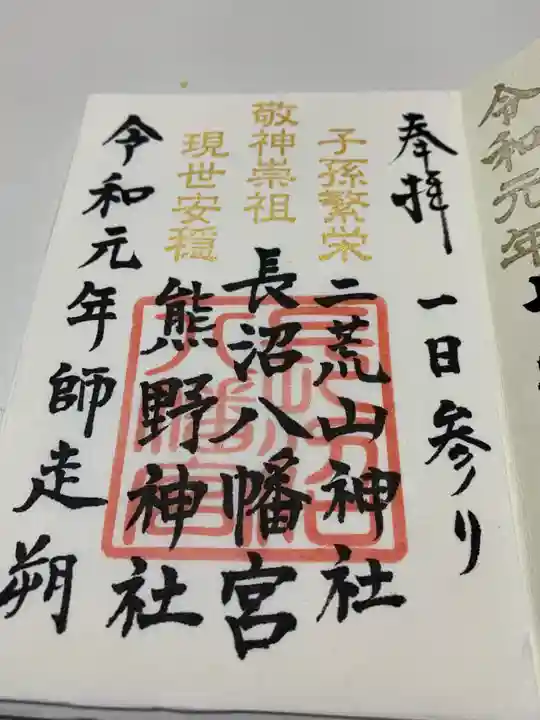 令和元年
奉拝 一日参り
子孫繁栄
二荒山神社
敬神崇祖
長沼八幡宮
現世安穏
熊野神社
令和元年師走朔